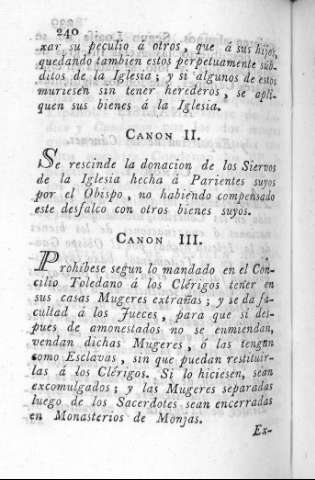 240
xar su peculio á otros, que á sus hijos,
quedando tambien estos perpetuamente súb-
ditos de la Iglesia; y si algunos de estos
muriesen sin tener herederos, se apli-
quen sus bienes á la Iglesia.
CANON II.
Se rescinde la donacion de los Siervos
de la Iglesia hecha á Parientes suyos
por el Obispo, no habiendo compensado
este desfalco con otros bienes suyos.
CANON III.
Prohibese segun lo mandado en el Con-
cilio Toledano á los Clérigos tener en
sus casas Mugeres extrañas; y se da fa-
cultad á los Jueces, para que si des-
pues de amonestados no se enmiendan,
vendan dichas Mugeres, ó las tengan
como Esclavas, sin que puedan restituir-
las á los Clérigos. Si lo hiciesen, sean
excomulgados; y las Mugeres separadas
luego de los Sacerdotes sean encerradas
en Monasterios de Monjas.
Ex-